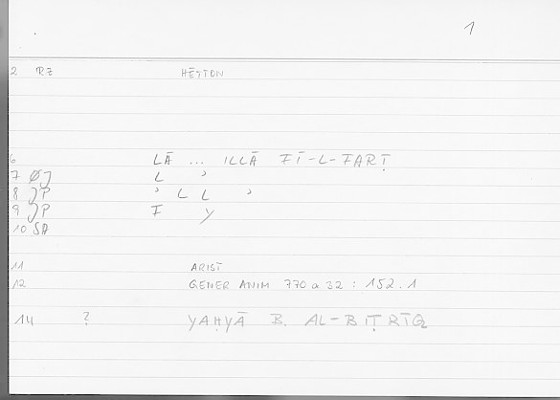 1
2 RZ HĒTTON
6 LĀ ... ILLĀ FĪ-L-FARṬ
7 ØJ L ʾ
8 JP ʾ L L ʾ
9 JP F Y
10 SA
11 ARIST
12 GENER ANIM 770 a 32 : 152.1
14 ? YAḤYĀ B. AL-BIṬRĪQ